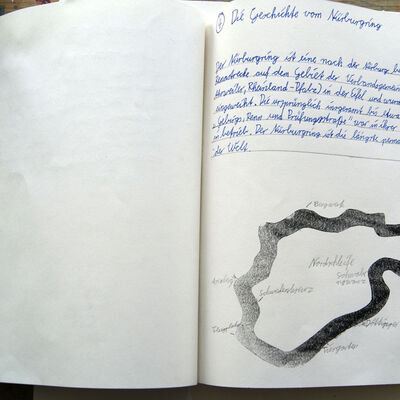 ④ Die Geschichte vom Nürburgring
Der Nürburgring ist eine nach der Nürburg be
Rennstrecke auf dem Gebiet der Verbandsgemein
Ahrweiler, Rheinland-Pfalz) in der Eifel und wurde
eingeweiht. Die ursprünglich insgesamt bis etwa
„Gebirgs, Renn und Prüfungsstraße" war in ihrer
in betrieb. Der Nürburgring ist die längste perma
der Welt.
Bergwerk
Nordschleife
Schwalben
Schwedenkreuz
Tiergarten